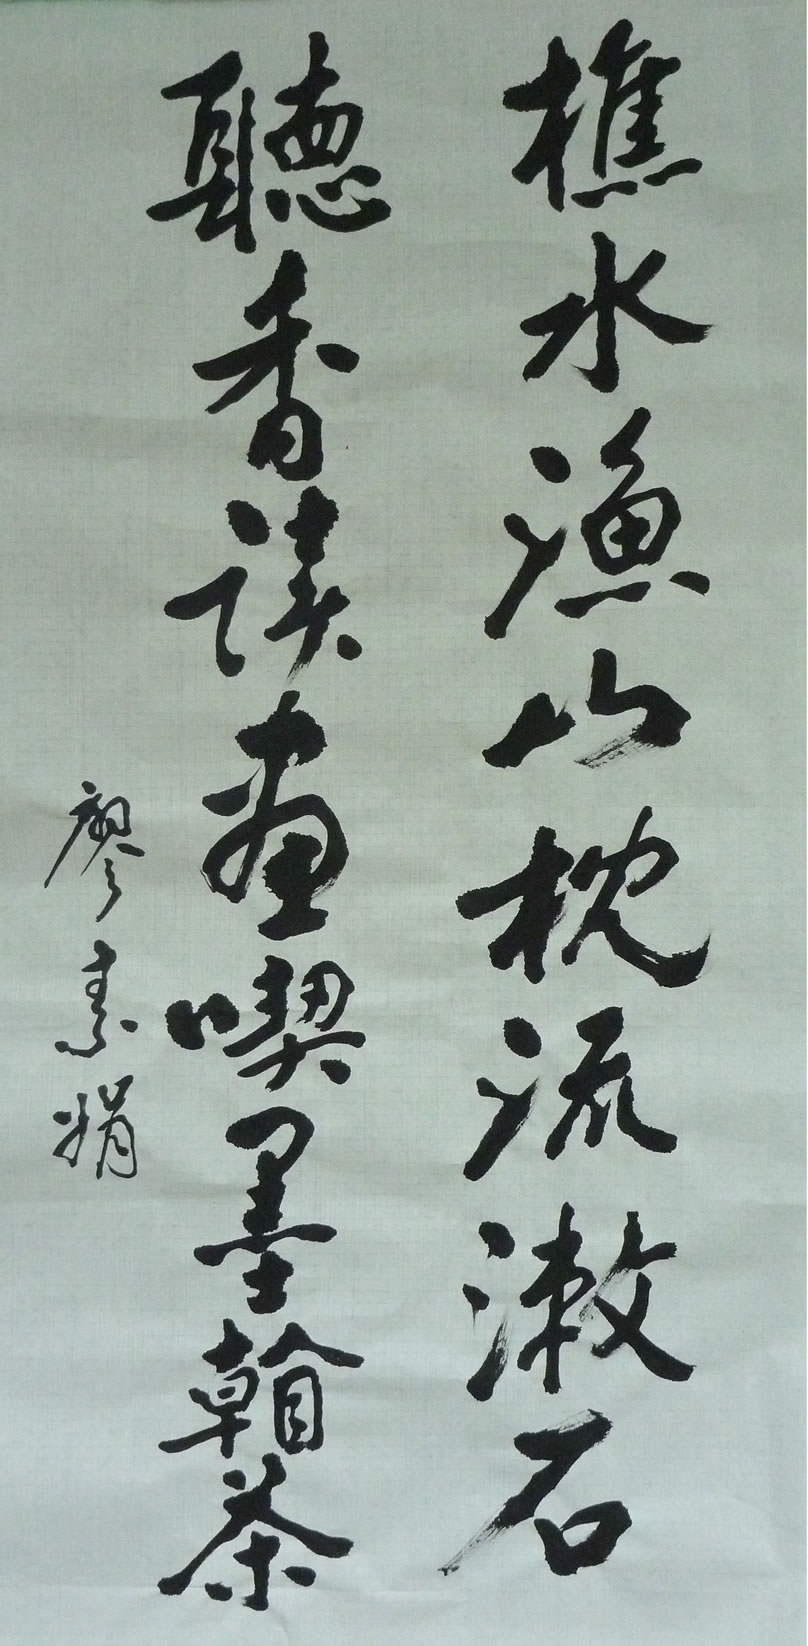 樵水漁山枕流漱石
聽香讀畫喫墨翰茶
廖素娟